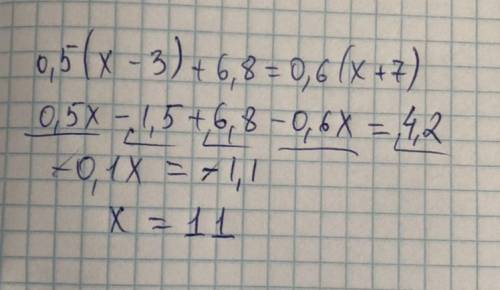 0,5(x - 3) + 6,8 = 0,6(x + 7)
0,5x - 1,5 + 6,8 - 0,6x = 4,2
-0,1x = -1,1
x = 11